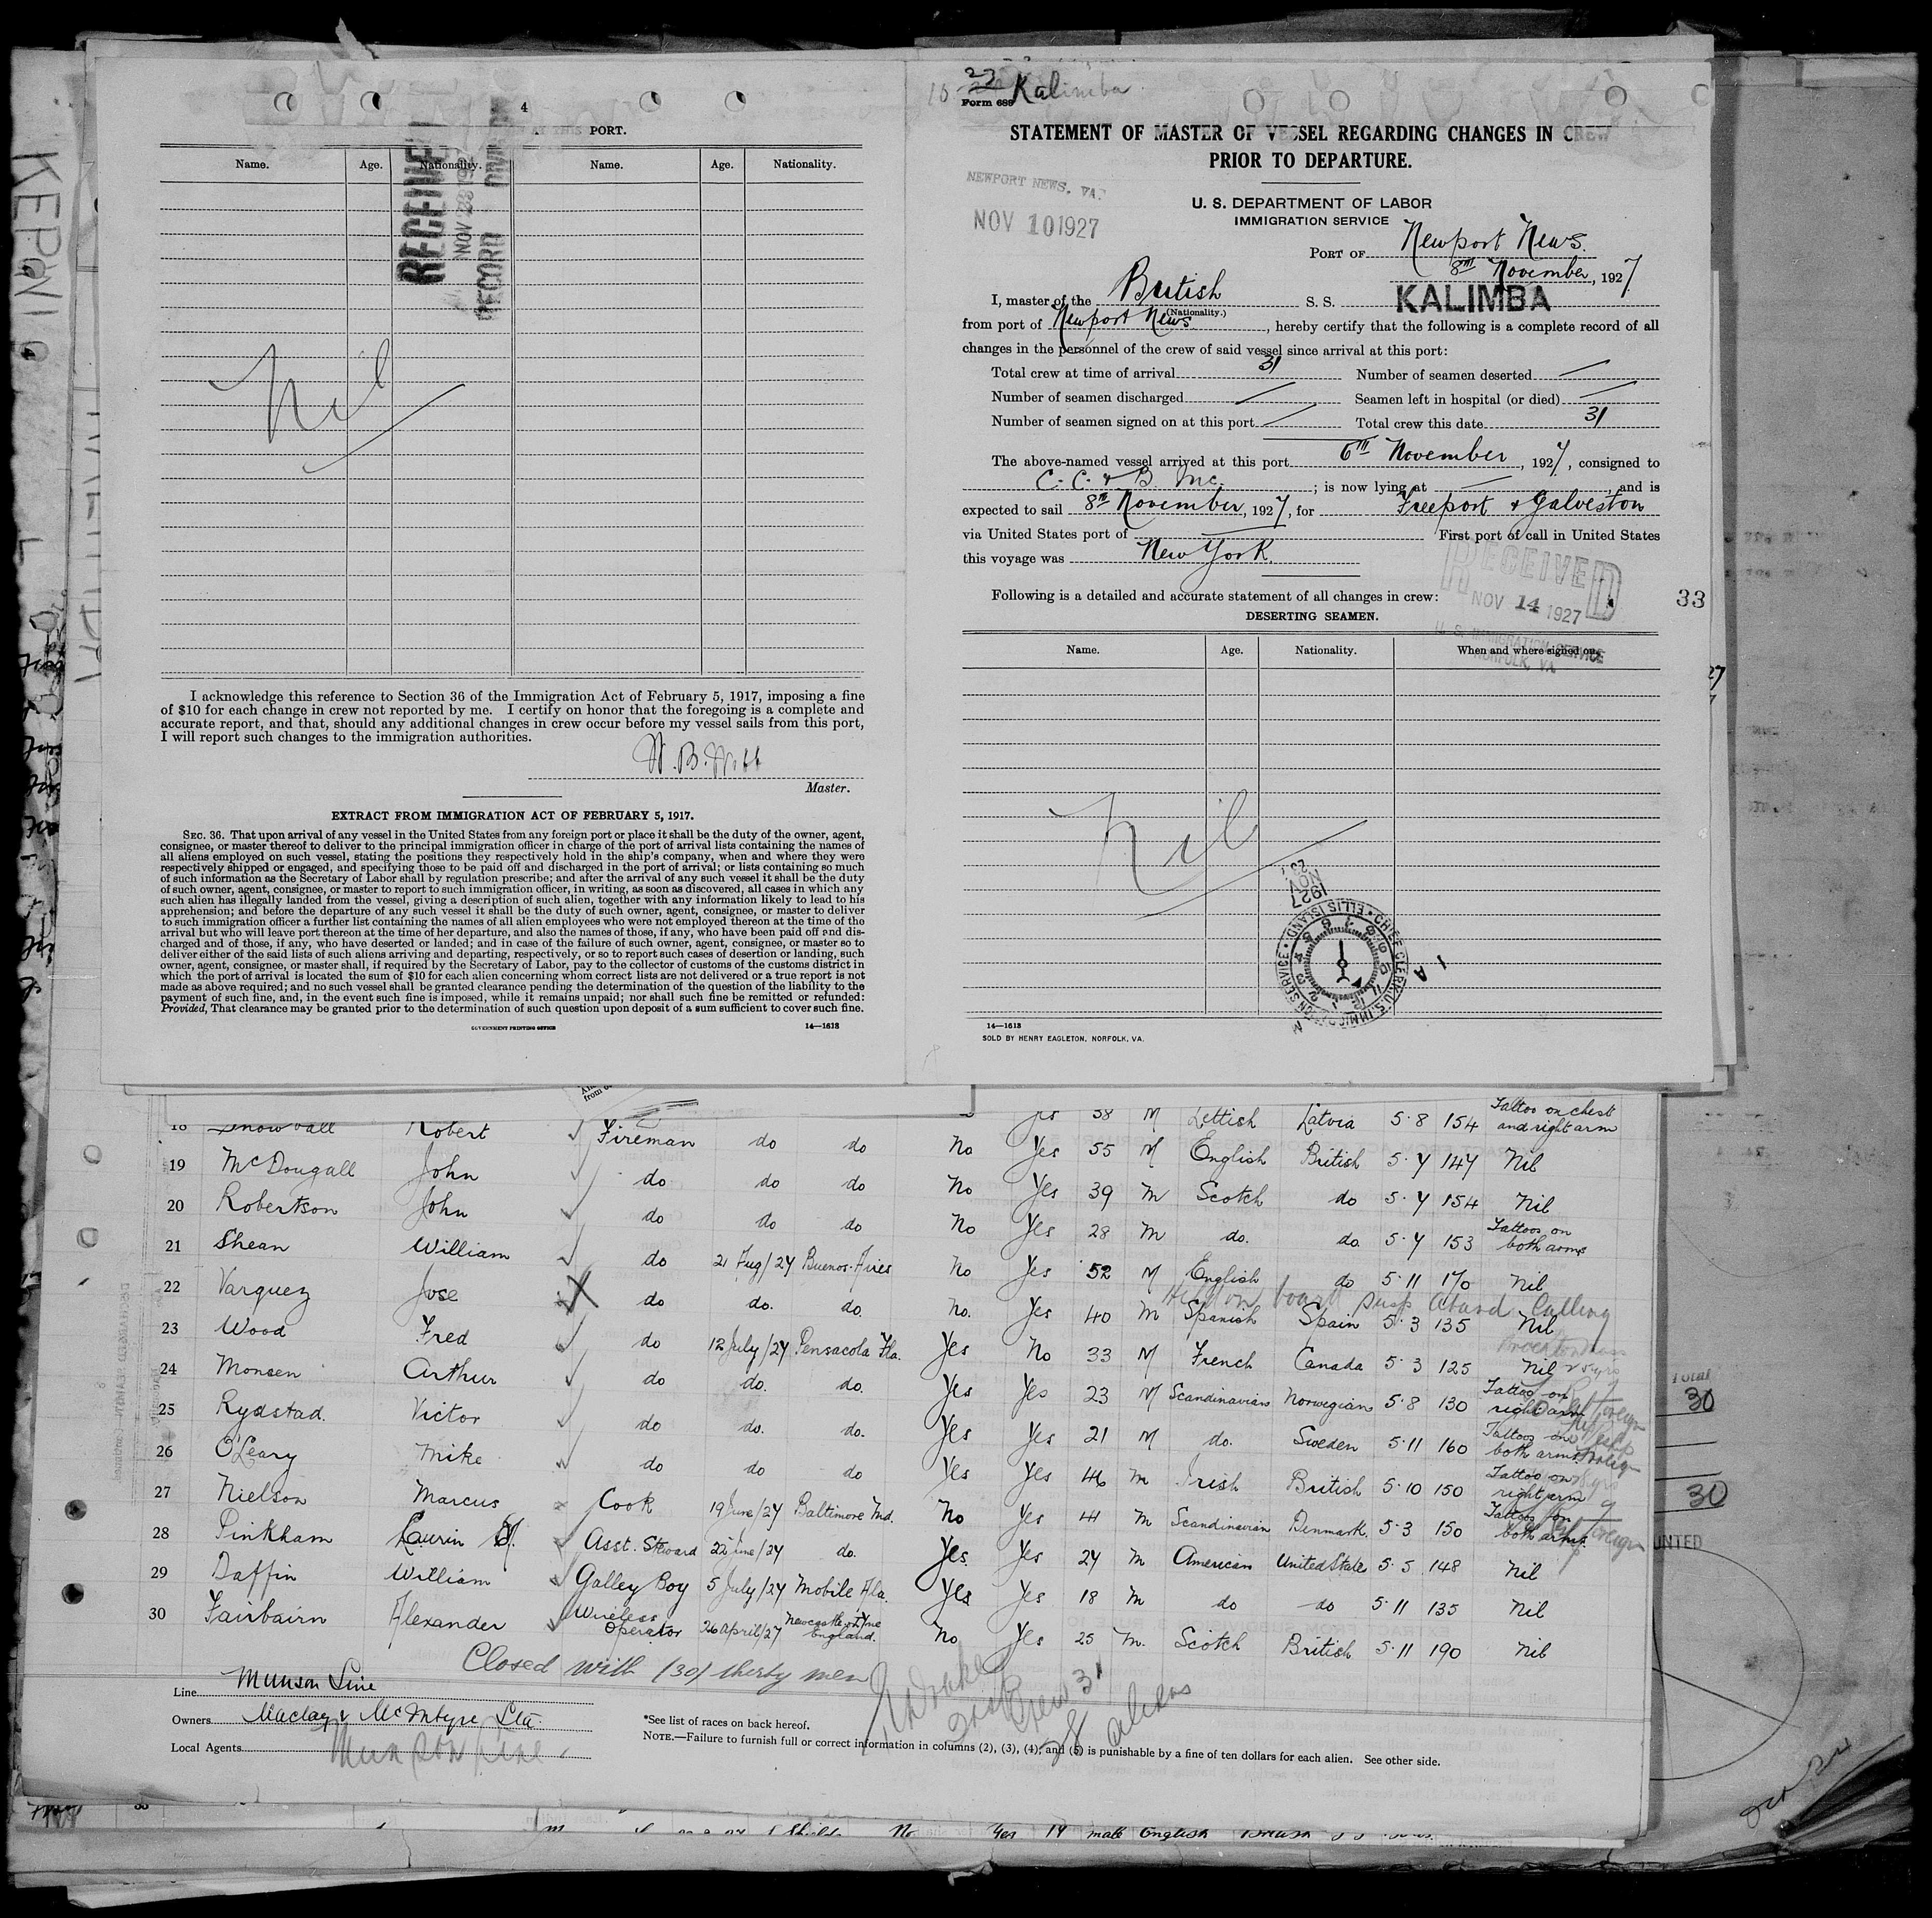 4
AT THIS PORT.
Name. Age. Nationality. Name. Age. Nationality.
RECEIVED
NOV 23 192
RECORD DIVISION
Nil
I acknowledge this reference to Section 36 of the Immigration Act of February 5, 1917, imposing a fine
of $10 for each change in crew not reported by me. I certify on honor that the foregoing is a complete and
accurate report, and that, should any additional changes in crew occur before my vessel sails from this port,
I will report such changes to the immigration authorities.
Master.
EXTRACT FROM IMMIGRATION ACT OF FEBRUARY 5, 1917.
SEC. 36. That upon arrival of any vessel in the United States from any foreign port or place it shall be the duty of the owner, agent,
consignee, or master thereof to deliver to the principal immigration officer in charge of the port of arrival lists containing the names of
all aliens employed on such vessel, stating the positions they respectively hold in the ship's company, when and where they were
respectively shipped or engaged, and specifying those to be paid off and discharged in the port of arrival; or lists containing so much
of such information as the Secretary of Labor shall by regulation prescribe; and after the arrival of any such vessel it shall be the duty
of such owner, agent, consignee, or master to report to such immigration officer, in writing, as soon as discovered, all cases in which any
such alien has illegally landed from the vessel, giving a description of such alien, together with any information likely to lead to his
apprehension; and before the departure of any such vessel it shall be the duty of such owner, agent, consignee, or master to deliver
to such immigration officer a further list containing the names of all alien employees who were not employed thereon at the time of the
arrival but who will leave port thereon at the time of her departure, and also the names of those, if any, who have been paid off and dis-
charged and of those, if any, who have deserted or landed; and in case of the failure of such owner, agent, consignee, or master so to
deliver either of the said lists of such aliens arriving and departing, respectively, or so to report such cases of desertion or landing, such
owner, agent, consignee, or master shall, if required by the Secretary of Labor, pay to the collector of customs of the customs district in
which the port of arrival is located the sum of $10 for each alien concerning whom correct lists are not delivered or a true report is not
made as above required; and no such vessel shall be granted clearance pending the determination of the question of the liability to the
payment of such fine, and, in the event such fine is imposed, while it remains unpaid; nor shall such fine be remitted or refunded:
Provided, That clearance may be granted prior to the determination of such question upon deposit of a sum sufficient to cover such fine.
GOVERNMENT PRINTING OFFICE 14—1613
23
Form 689 Kalimba
STATEMENT OF MASTER OF VESSEL REGARDING CHANGES IN CREW
PRIOR TO DEPARTURE.
NEWPORT NEWS, VA.
NOV 10 1927
U. S. DEPARTMENT OF LABOR
IMMIGRATION SERVICE
PORT OF Newport News.
8th November, 1927
I, master of the British S. S. KALIMBA
(Nationality.)
from port of Newport News, hereby certify that the following is a complete record of all
changes in the personnel of the crew of said vessel since arrival at this port:
Total crew at time of arrival 31 Number of seamen deserted —
Number of seamen discharged — Seamen left in hospital (or died) —
Number of seamen signed on at this port — Total crew this date 31
The above-named vessel arrived at this port 6th November, 1927, consigned to
C. C. & B. Inc. ; is now lying at — , and is
expected to sail 8th November, 1927, for Freeport & Galveston
via United States port of — First port of call in United States
this voyage was New York.
Following is a detailed and accurate statement of all changes in crew:
DESERTING SEAMEN.
RECEIVED
NOV 14 1927
U. S. IMMIGRATION SERVICE
NORFOLK, VA
33
Name. Age. Nationality. When and where signed on.
Nil
23 NOV 1927
CHIEF CLERK U.S. IMMIGRATION SERVICE • ELLIS ISLAND
14—1613
SOLD BY HENRY EAGLETON, NORFOLK, VA.
Yes 38 M Lettish Latvia 5·8 154 Tattoo on chest and right arm
18 Snowball Robert Fireman do do No Yes 55 M English British 5·7 147 Nil
19 McDougall John do do do No Yes 39 M Scotch do 5·7 154 Nil
20 Robertson John do do do No Yes 28 M do. do 5·7 153 Tattoos on both arms
21 Shean William do 21 Aug/27 Buenos-Aires No Yes 52 M English do 5·11 170 Nil
22 Varquez Jose do do. do. No. Yes 40 M Spanish Spain 5·3 135 Nil
23 Wood Fred do 12 July/27 Pensacola Fla. Yes No 33 M French Canada 5·3 125 Nil
24 Monsen Arthur do do. do. Yes Yes 23 M Scandinavian Norwegian 5·8 130 Tattoo on right arm
25 Rydstad. Victor do do. do. Yes Yes 21 M do. Sweden 5·11 160 Tattoo on both arms
26 O'Leary Mike do do do Yes Yes 46 M Irish British 5·10 150 Tattoo on right arm
27 Nielson Marcus Cook 19 June/27 Baltimore Md. No Yes 41 M Scandinavian Denmark 5·3 150 Tattoos on both arms
28 Pinkham Laurin Asst. Steward 22 June/27 do. Yes Yes 24 M American United States 5·5 148 Nil
29 Daffin William Galley Boy 5 July/27 Mobile Ala. Yes Yes 18 M do do 5·11 135 Nil
30 Fairbairn Alexander Wireless Operator 26 April/27 Newcastle o/Tyne England. No Yes 25 M. Scotch British 5·11 190 Nil
Held on board
Closed with (30) thirty men
Crew 31
28 aliens
Line Munson Line
Owners Maclay & McIntyre Ltd.
Local Agents Munson Line
*See list of races on back hereof.
NOTE.—Failure to furnish full or correct information in columns (2), (3), (4), and (5) is punishable by a fine of ten dollars for each alien. See other side.
Total
30
30